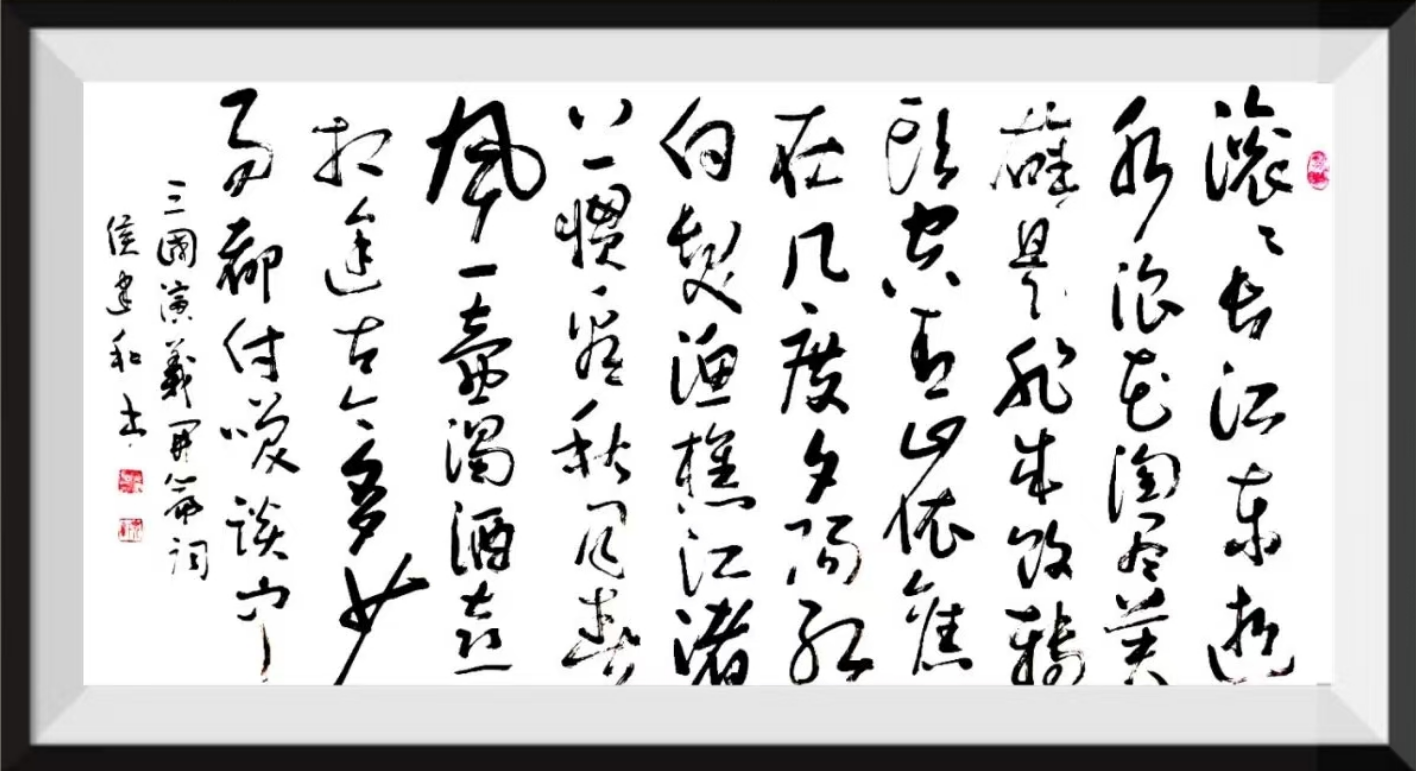 滚〻长江东逝
水浪花淘尽英
雄是非成败转
头空青山依旧
在几度夕阳红
白发渔樵江渚
上惯看秋月春
风一壶浊酒喜
相逢古今多少
事都付笑谈中
三國演义開篇词
侯建和书